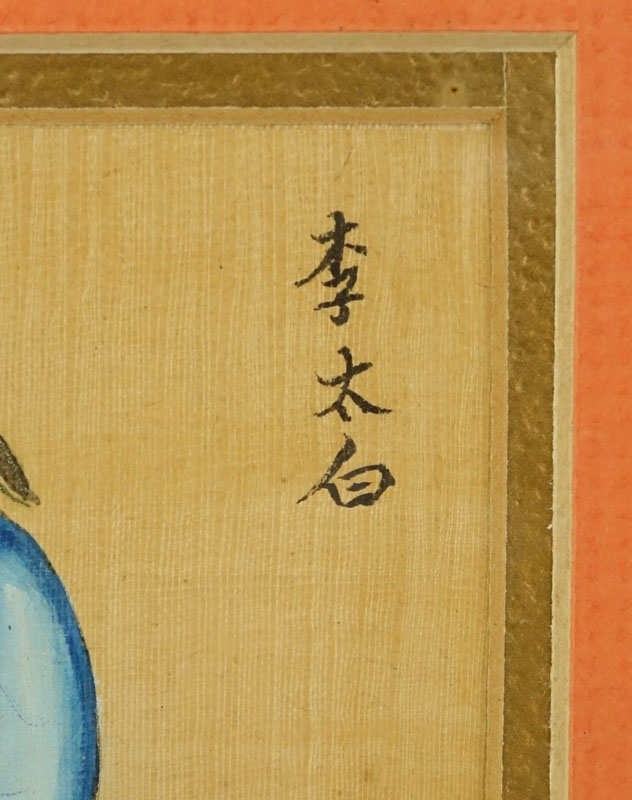 李太白